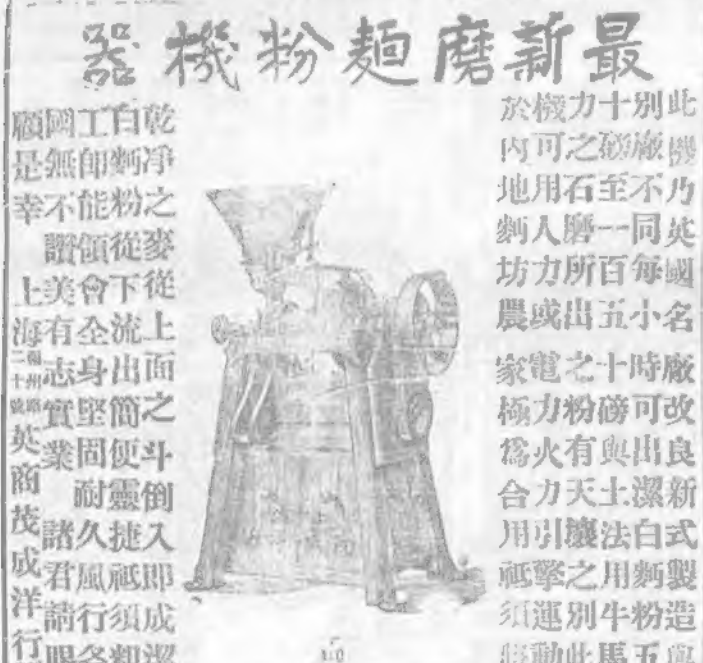 最新磨麵粉機器
此機乃英國名廠改良新式製造與
別廠不同每小時可出潔白麪粉五
十磅至一百五十磅與土法用牛馬
力之石磨所出之粉有天壤之別此
機可用人力或電力火力引擎運動
於內地麪坊農家極爲合用祇須將
乾凈之麥從上面之斗倒入即成潔
白麪粉從下流出簡便靈捷祇須粗
工即能領會全身堅固耐久風行各
國無不讚美有志實業諸君請賜
顧是幸 上海福州路二十號英商茂成洋行